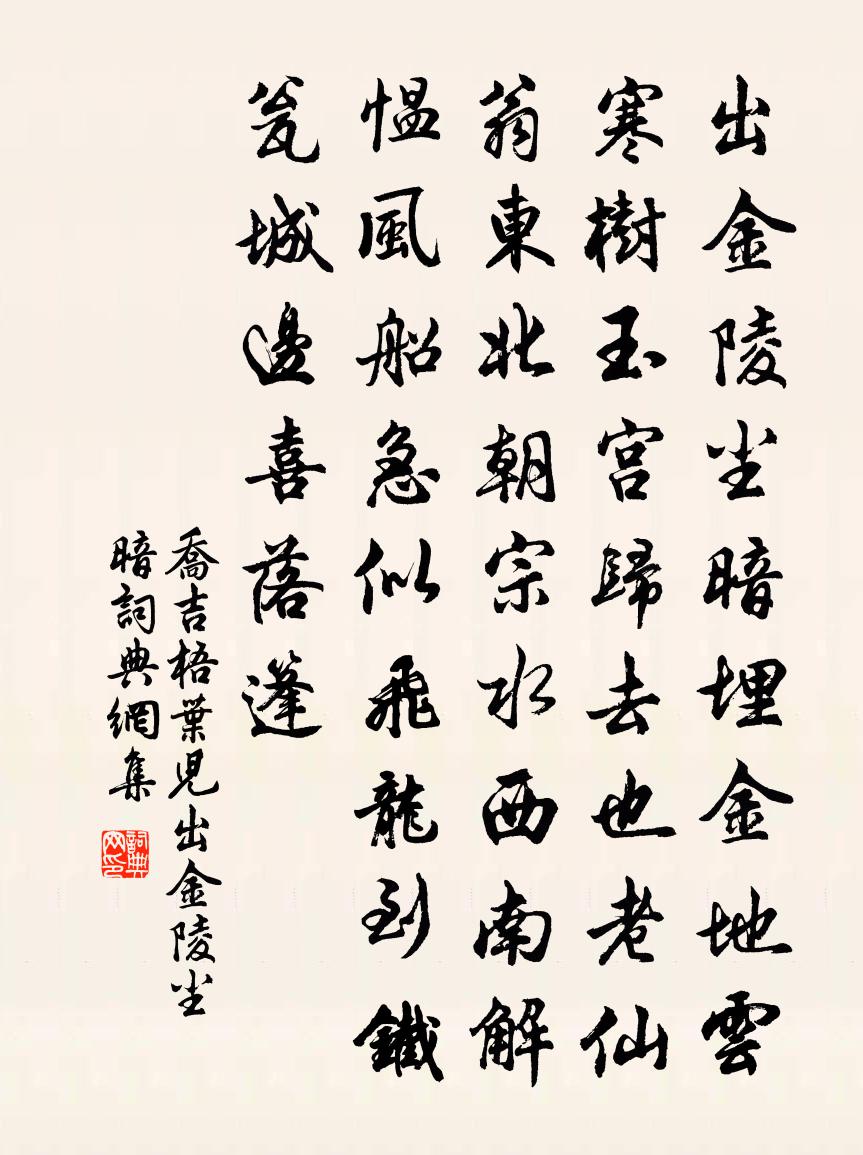 出金陵尘暗埋金地雲
寒樹玉宫歸去也老仙
翁東北朝宗水西南解
愠風船急似飛龍到鐵
瓮城邊喜落篷
喬吉梧葉兒出金陵尘
暗詞典網集
詞典
网印